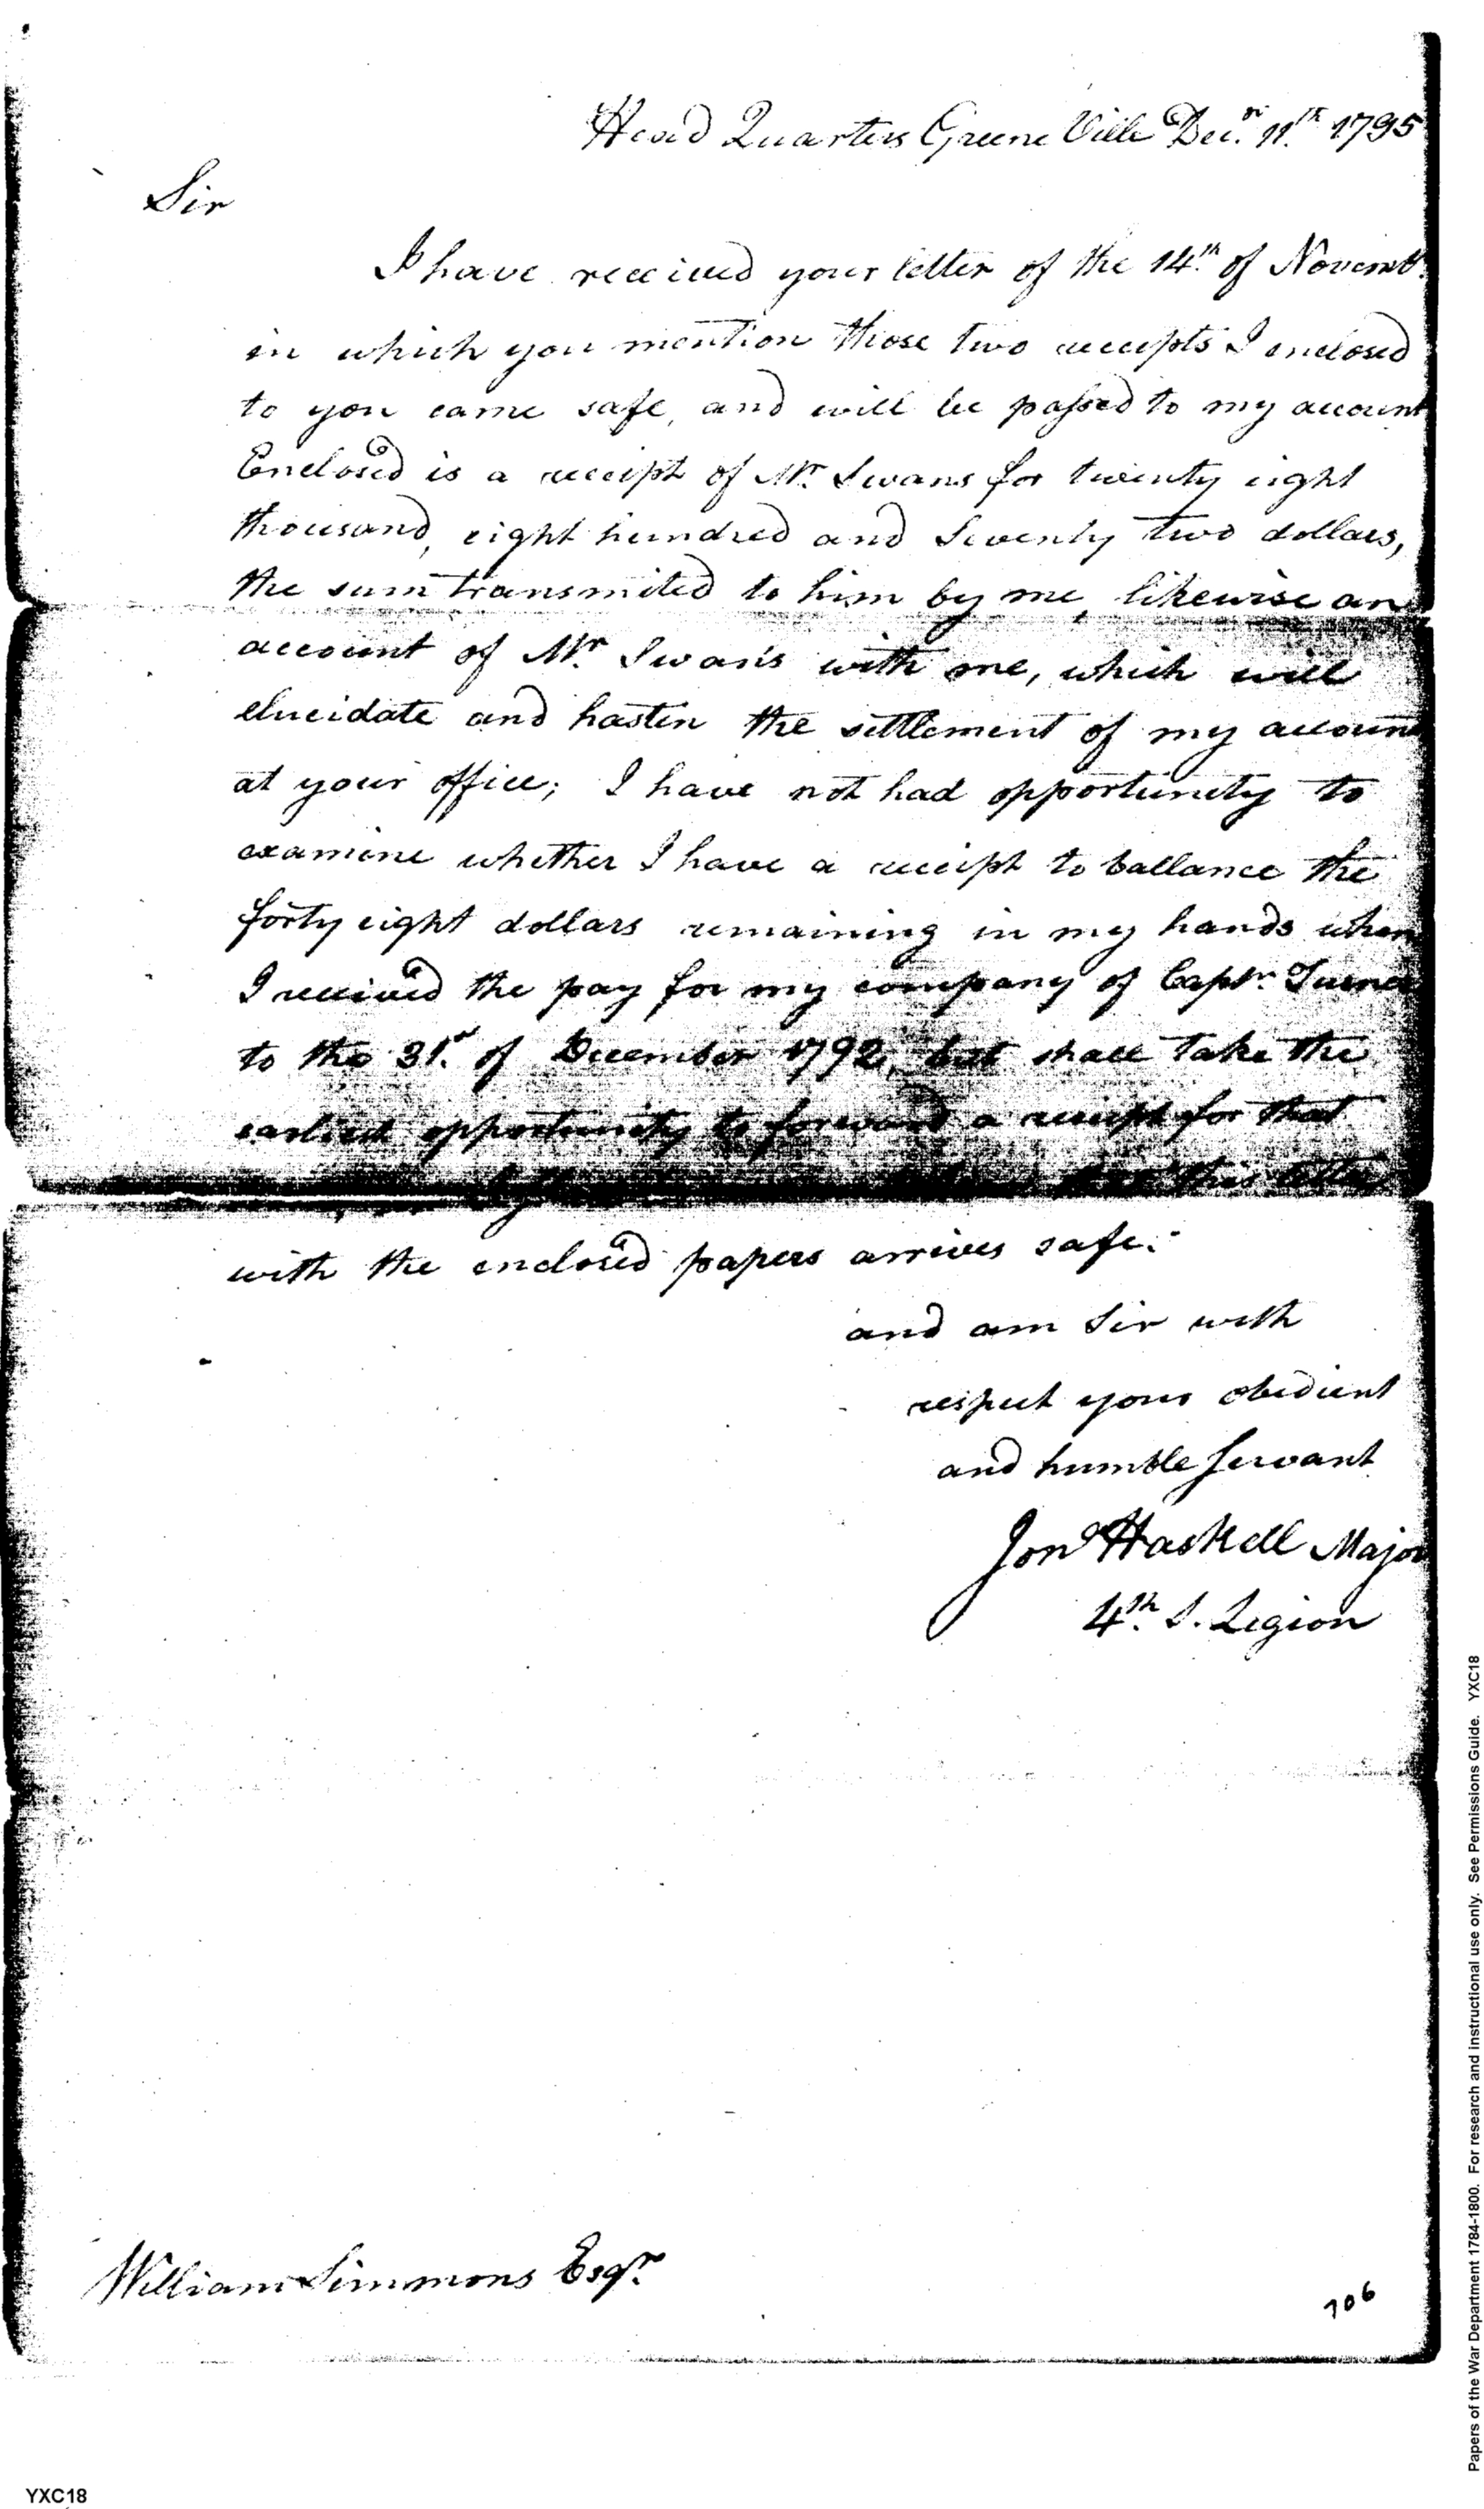 Head Quarters Greene Ville Decr. 11.th 1795
Sir
I have received your letter of the 14.th of Novemb.
in which you mention those two receipts I enclosed
to you came safe, and will be passed to my account
Enclosed is a receipt of Mr. Swans for twenty eight
thousand, eight hundred and Seventy two dollars,
the sum transmited to him by me, likewise an
account of Mr. Swan's with me, which will
elucidate and hasten the settlement of my account
at your office; I have not had opportunity to
examine whether I have a receipt to ballance the
forty eight dollars remaining in my hands when
I received the pay for my company of Captn. Turner
to the 31.st of December 1792, but shall take the
earliest opportunity to forward a receipt for that
that this letter
with the enclosed papers arrives safe.
and am Sir with
respect your obedient
and humble Servant
Jona Haskell Major
4.th S. Legion
William Simmons Esqr.
706
YXC18
Papers of the War Department 1784-1800. For research and instructional use only. See Permissions Guide. YXC18